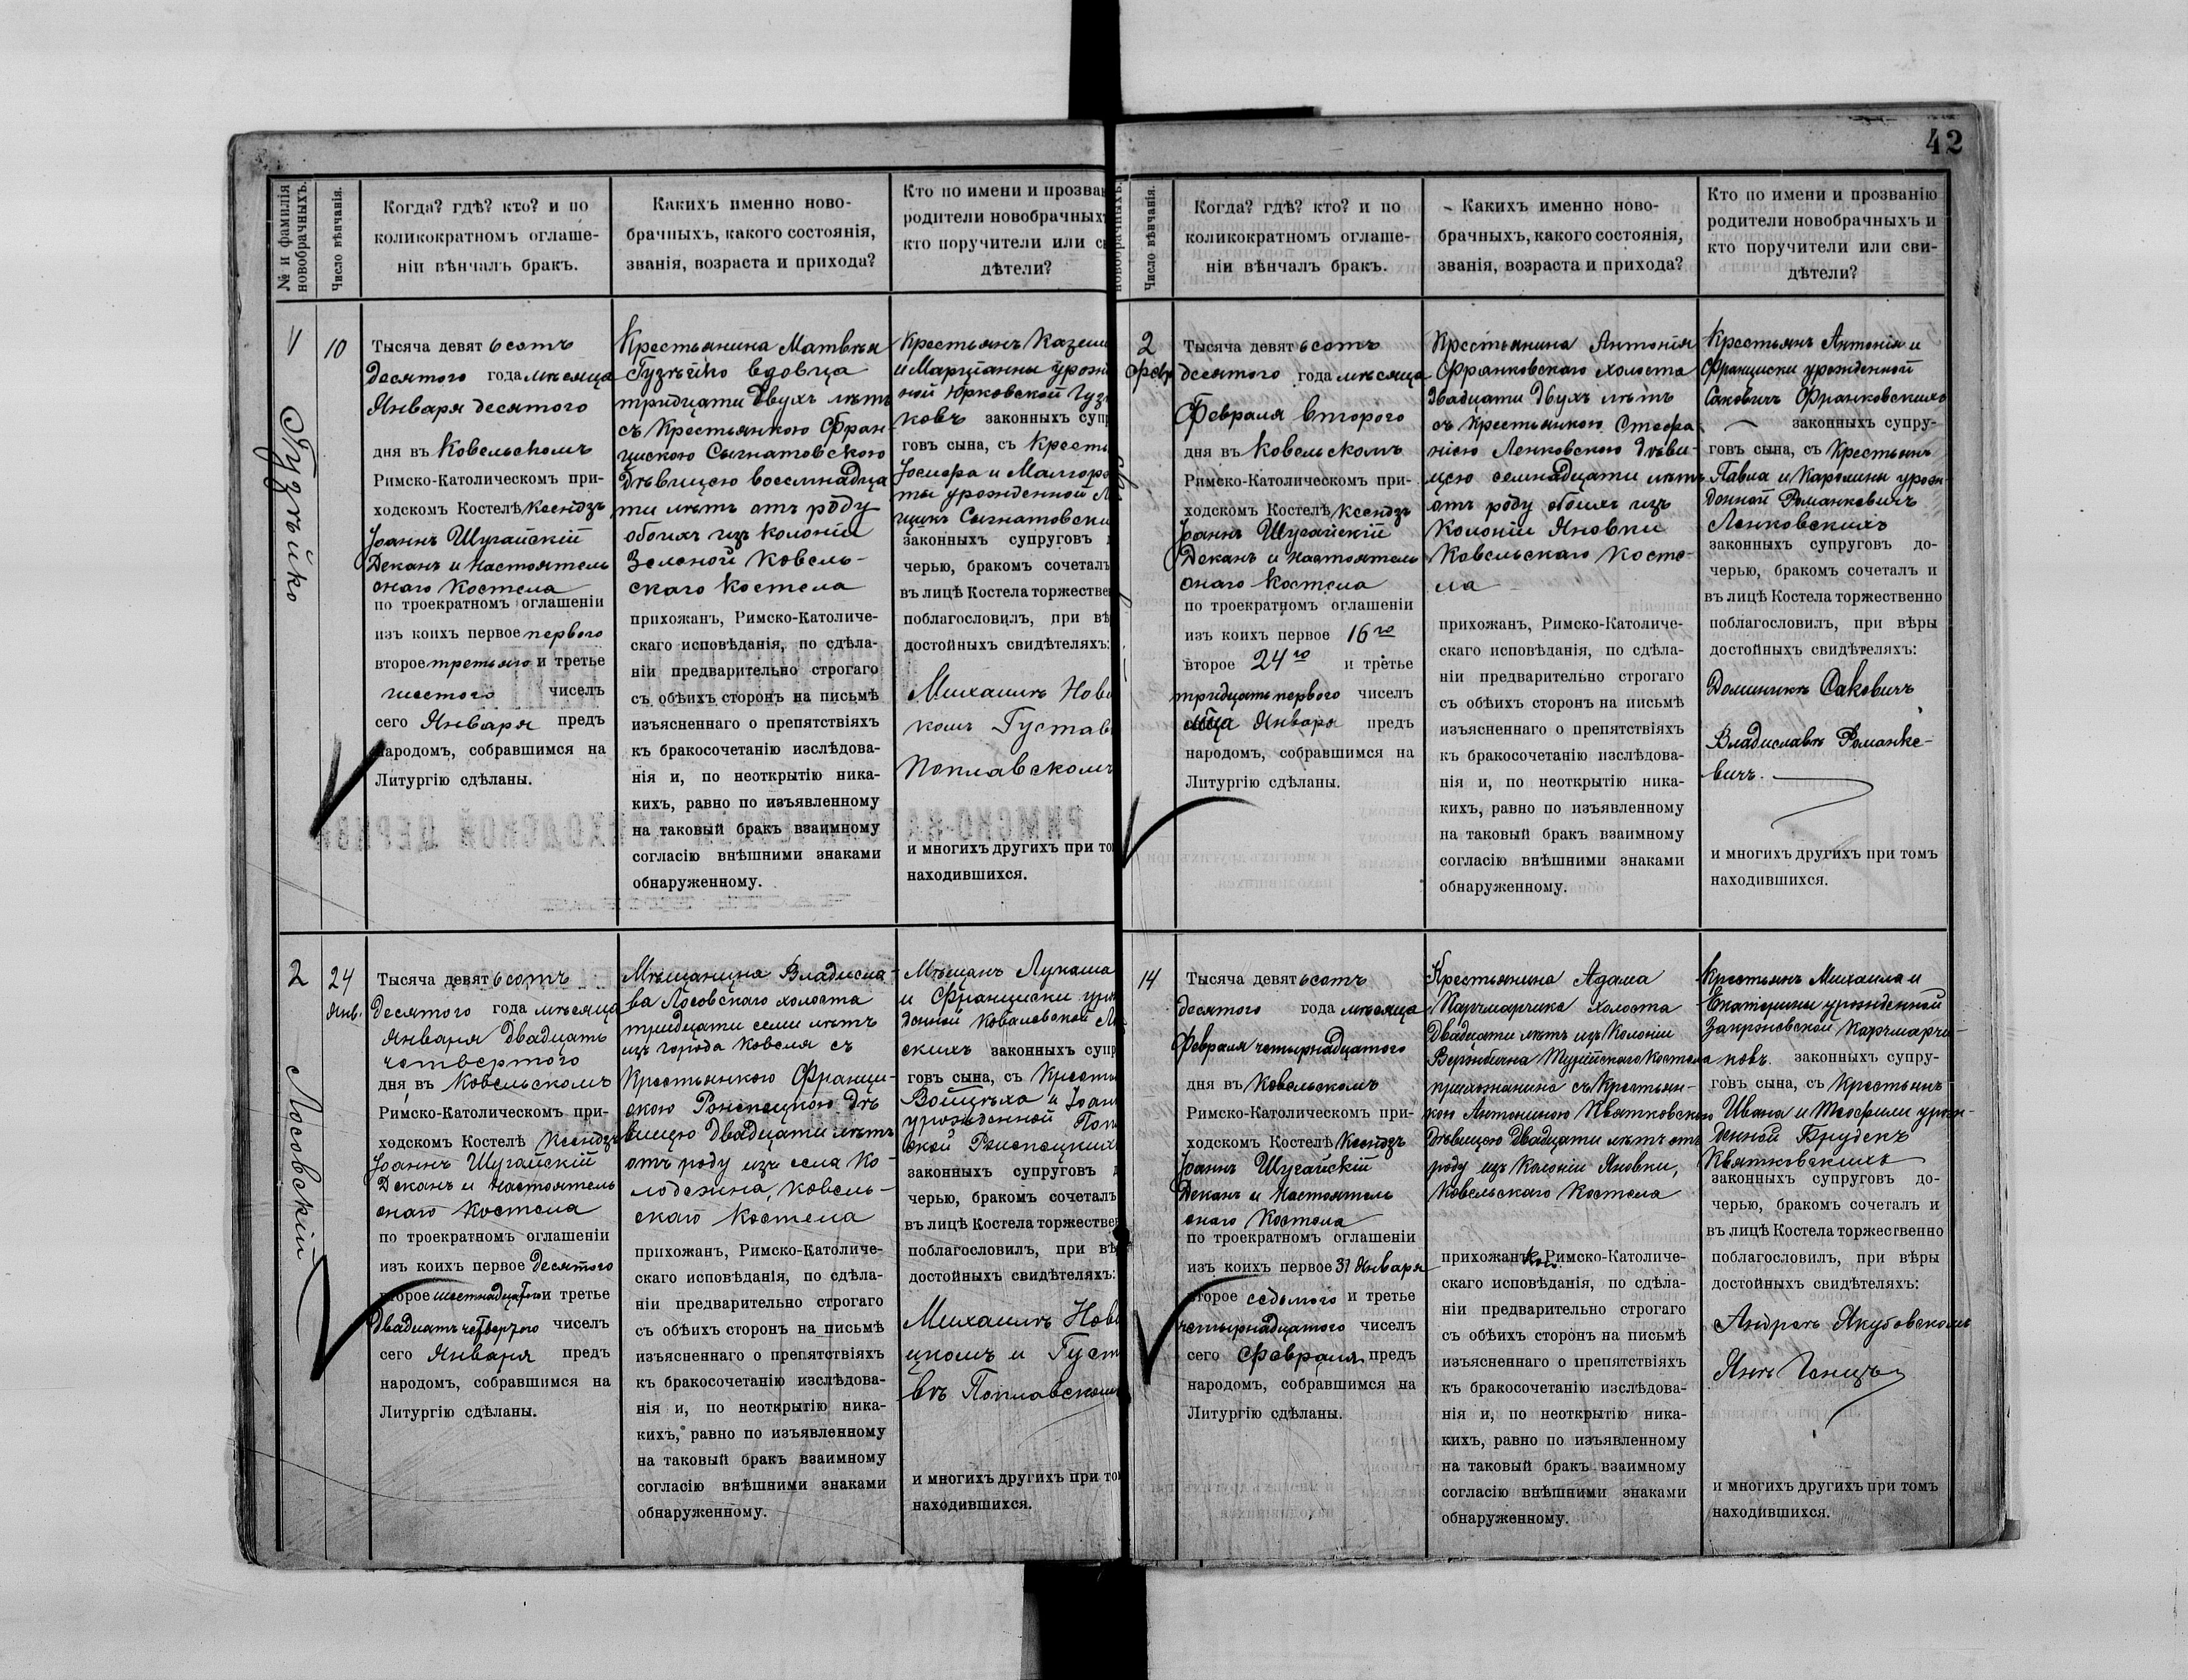 42
№ и фамилія
новобрачныхъ.
Число вѣнчанія.
Когда? гдѣ? кто? и по
коликократномъ оглаше-
ніи вѣнчалъ бракъ.
Какихъ именно ново-
брачныхъ, какого состоянія,
званія, возраста и прихода?
Кто по имени и прозва
родители новобрачных
кто поручители или с
дѣтели?
1
Гузѣйко
10
Тысяча девятьсотъ
десятого года мѣсяца
Января десятого
дня въ Ковельскомъ
Римско-Католическомъ при-
ходскомъ Костелѣ Ксендзъ
Іоаннъ Шугайскій
Деканъ и Настоятель
онаго Костела
по троекратномъ оглашеніи
изъ коихъ первое первого
второе третьяго и третье
шестого чиселъ
сего Января предъ
народомъ, собравшимся на
Литургію сдѣланы.
Крестьянина Матвѣя
Гузѣйко вдовца
тридцати двухъ лѣтъ
съ Крестьянкою Фран-
цискою Сыгнатовскою
дѣвицею восемнадца
ти лѣтъ отъ роду
обоихъ изъ колоніи
Зеленой Ковель-
скаго Костела
прихожанъ, Римско-Католиче-
скаго исповѣданія, по сдѣла-
ніи предварительно строгаго
съ обѣихъ сторонъ на письмѣ
изъясненнаго о препятствіяхъ
къ бракосочетанію изслѣдова-
нія и, по неоткрытію ника-
кихъ, равно по изъявленному
на таковый бракъ взаимному
согласію внѣшними знаками
обнаруженному.
Крестьянъ Каземи
и Марціанны урожд
ной Юрковской Гузѣ
ковъ законныхъ супр
говъ сына, съ Кресть
Іосифа и Малгоржа
ты урожденной
Сыгнатовски
законныхъ супруговъ д
черью, бракомъ сочеталъ
въ лицѣ Костела торжестве
поблагословилъ, при вѣ
достойныхъ свидѣтеляхъ:
Михаилѣ Нов
комъ Густав
Поплавскомъ
и многихъ другихъ при то
находившихся.
2
Лосовскій
24
Янв.
Тысяча девятьсотъ
десятого года мѣсяца
Января двадцать
четвертого
дня въ Ковельскомъ
Римско-Католическомъ при-
ходскомъ Костелѣ Ксендзъ
Іоаннъ Шугайскій
Деканъ и Настоятель
онаго Костела
по троекратномъ оглашеніи
изъ коихъ первое десятого
второе шестнадцатого и третье
двадцать четвертого чиселъ
сего Января предъ
народомъ, собравшимся на
Литургію сдѣланы.
Мѣщанина Владисла-
ва Лосовскаго холоста
тридцати семи лѣтъ
изъ города Ковеля съ
Крестьянкою Франци-
скою Ржепецкою дѣ
вицею двадцати лѣтъ
отъ роду изъ села Ко-
лодежина, Ковель-
скаго Костела
прихожанъ, Римско-Католиче-
скаго исповѣданія, по сдѣла-
ніи предварительно строгаго
съ обѣихъ сторонъ на письмѣ
изъясненнаго о препятствіяхъ
къ бракосочетанію изслѣдова-
нія и, по неоткрытію ника-
кихъ, равно по изъявленному
на таковый бракъ взаимному
согласію внѣшними знаками
обнаруженному.
Мѣщанъ Лукаша
и Франциски урож
денной Ковалевской
скихъ законныхъ супр
говъ сына, съ Кресть
Войцѣха и Іоан
урожденной Поп
ской Ржепецких
законныхъ супруговъ д
черью, бракомъ сочеталъ
въ лицѣ Костела торжестве
поблагословилъ, при вѣ
достойныхъ свидѣтеляхъ:
Михаилѣ Нов
цкомъ и Густ
вѣ Поплавском
и многихъ другихъ при то
находившихся.
новобрачныхъ.
Число вѣнчанія.
Когда? гдѣ? кто? и по
коликократномъ оглаше-
ніи вѣнчалъ бракъ.
Какихъ именно ново-
брачныхъ, какого состоянія,
званія, возраста и прихода?
Кто по имени и прозванію
родители новобрачныхъ и
кто поручители или сви-
дѣтели?
2
февр
Тысяча девятьсотъ
десятого года мѣсяца
Февраля второго
дня въ Ковельскомъ
Римско-Католическомъ при-
ходскомъ Костелѣ Ксендзъ
Іоаннъ Шугайскій
Деканъ и Настоятель
онаго Костела
по троекратномъ оглашеніи
изъ коихъ первое 16го
второе 24го и третье
тридцать первого чиселъ
Января предъ
народомъ, собравшимся на
Литургію сдѣланы.
Крестьянина Антонія
Франковскаго холоста
двадцати двухъ лѣтъ
съ Крестьянкою Стефа
ніею Ленковскою дѣви-
цею семнадцати лѣтъ
отъ роду обоихъ изъ
Колоніи Яновки
Ковельскаго Косте-
ла
прихожанъ, Римско-Католиче-
скаго исповѣданія, по сдѣла-
ніи предварительно строгаго
съ обѣихъ сторонъ на письмѣ
изъясненнаго о препятствіяхъ
къ бракосочетанію изслѣдова-
нія и, по неоткрытію ника-
кихъ, равно по изъявленному
на таковый бракъ взаимному
согласію внѣшними знаками
обнаруженному.
Крестьянъ Антонія и
Франциски урожденной
Саковичъ Франковскихъ
законныхъ супру-
говъ сына, съ Крестьянъ
Павла и Каролины урож-
денной Романкевичъ
Ленковскихъ
законныхъ супруговъ до-
черью, бракомъ сочеталъ и
въ лицѣ Костела торжественно
поблагословилъ, при вѣры
достойныхъ свидѣтеляхъ:
Доминикъ Саковичъ
Владиславъ Романке-
вичъ.
и многихъ другихъ при томъ
находившихся.
14
Тысяча девятьсотъ
десятого года мѣсяца
Февраля четырнадцатого
дня въ Ковельскомъ
Римско-Католическомъ при-
ходскомъ Костелѣ Ксендзъ
Іоаннъ Шугайскій
Деканъ и Настоятель
онаго Костела
по троекратномъ оглашеніи
изъ коихъ первое 31 Января
второе седьмого и третье
четырнадцатого чиселъ
сего Февраля предъ
народомъ, собравшимся на
Литургію сдѣланы.
Крестьянина Адама
Карчмарчика холоста
двадцати лѣтъ изъ Колоніи
Турійскаго Костела
прихожанина съ Крестьян-
кою Антониною Квятковскою
дѣвицею двадцати лѣтъ отъ
роду изъ Колоніи Яновки,
Ковельскаго Костела
прихожанкою Римско-Католиче-
скаго исповѣданія, по сдѣла-
ніи предварительно строгаго
съ обѣихъ сторонъ на письмѣ
изъясненнаго о препятствіяхъ
къ бракосочетанію изслѣдова-
нія и, по неоткрытію ника-
кихъ, равно по изъявленному
на таковый бракъ взаимному
согласію внѣшними знаками
обнаруженному.
Крестьянъ Михаила и
Екатерины урожденной
Закржевской Карчмарчи-
ковъ законныхъ супру-
говъ сына, съ Крестьянъ
Ивана и Теофили урож-
денной Брудекъ
Квятковскихъ
законныхъ супруговъ до-
черью, бракомъ сочеталъ и
въ лицѣ Костела торжественно
поблагословилъ, при вѣры
достойныхъ свидѣтеляхъ:
Андреѣ Якубовскомъ
Янѣ
и многихъ другихъ при томъ
находившихся.